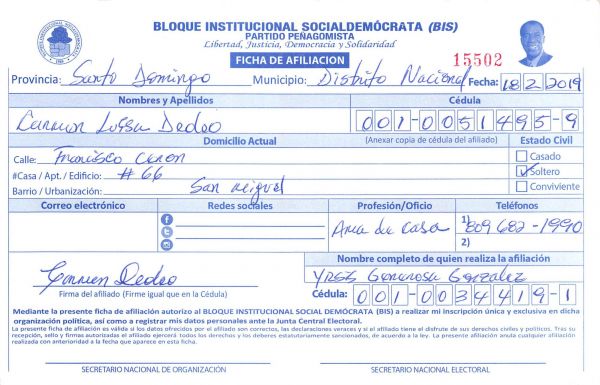 BLOQUE INSTITUCIONAL SOCIALDEMÓCRATA (BIS)
PARTIDO PEÑAGOMISTA
Libertad, Justicia, Democracia y Solidaridad
FICHA DE AFILIACION
15502
Provincia: Santo Domingo Municipio: Distrito Nacional Fecha: 18 2 2019
Nombres y Apellidos Cédula
Carmen Dedeo 001-0051495-9
(Anexar copia de cédula del afiliado)
Domicilio Actual Estado Civil
Calle: Francisco
Casado
#Casa / Apt. / Edificio: #66
Soltero
Barrio / Urbanización: San Miguel
Conviviente
Correo electrónico Redes sociales Profesión/Oficio Teléfonos
Ama de casa 1) 809 682-1990
2)
Nombre completo de quien realiza la afiliación
Generosa Gonzalez
Carmen Dedeo
Firma del afiliado (Firme igual que en la Cédula)
Cédula: 001-0034419-1
Mediante la presente ficha de afiliación autorizo al BLOQUE INSTITUCIONAL SOCIAL DEMÓCRATA (BIS) a realizar mi inscripción única y exclusiva en dicha
organización política, así como a registrar mis datos personales ante la Junta Central Electoral.
La presente ficha de afiliación es válida si los datos ofrecidos por el afiliado son correctos, las declaraciones veraces y si el afiliado tiene el disfrute de sus derechos civiles y políticos. Tras su
recepción, sello y firmas autorizadas el afiliado ejercerá todos los derechos y los deberes estatutariamente sancionados, de acuerdo a la ley. La presente afiliación anula cualquier afiliación
realizada con anterioridad a la fecha que aparece en esta ficha.
SECRETARIO NACIONAL DE ORGANIZACIÓN SECRETARIO NACIONAL ELECTORAL